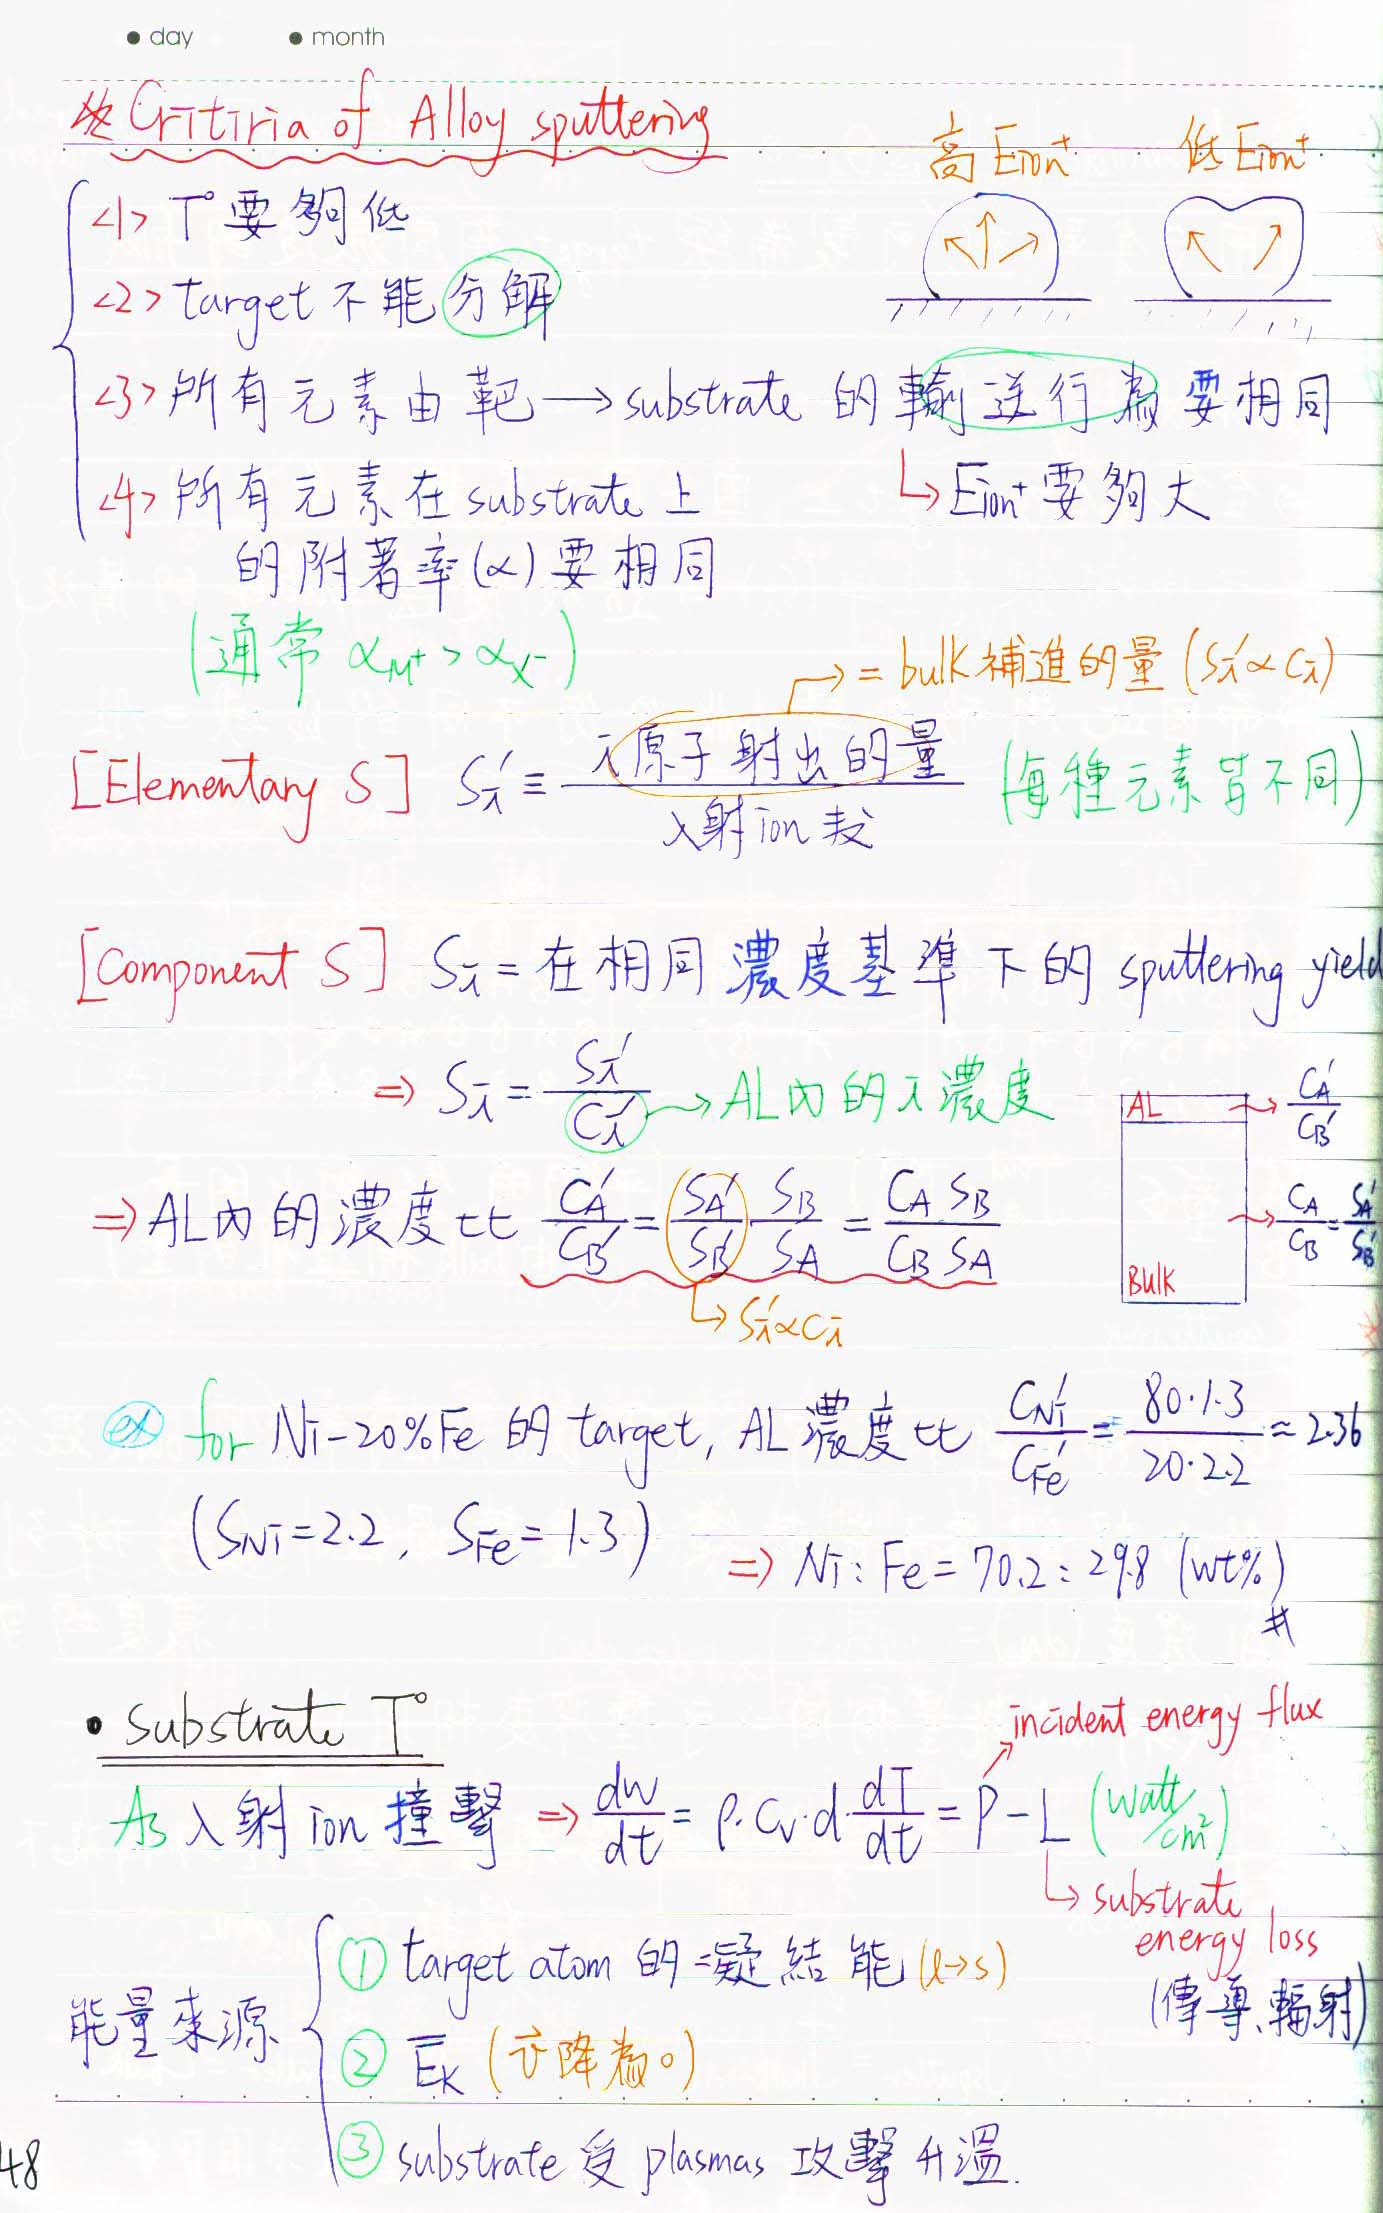 ● day ● month
※ Critiria of Alloy sputtering
高 Eion⁺ 低 Eion⁺
<1> T° 要夠低
<2> target 不能分解
<3> 所有元素由靶 → substrate 的輸送行為要相同
↳ Eion⁺ 要夠大
<4> 所有元素在 substrate 上
的附著率(α)要相同
(通常 αM⁺ > αX⁻)
→ = bulk 補進的量 (Si' ∝ Ci)
[Elementary S] Si' ≡ i原子射出的量 / 入射ion數 (每種元素皆不同)
[Component S] Si = 在相同濃度基準下的 sputtering yield
⇒ Si = Si' / Ci' → AL內的i濃度
AL → CA'/CB'
⇒ AL內的濃度比 CA'/CB' = SA'/SB' SB/SA = CA SB / CB SA
→ CA/CB = SA'/SB'
BULK
↳ Si' ∝ Ci
ex for Ni-20%Fe 的 target, AL 濃度比 CNi'/CFe' = 80·1.3 / 20·2.2 ≈ 2.36
(SNi = 2.2, SFe = 1.3)
⇒ Ni : Fe = 70.2 : 29.8 (wt%) #
• Substrate T°
incident energy flux
As 入射 ion 撞擊 ⇒ dw/dt = ρ·Cv·d·dT/dt = P - L (watt/cm²)
↳ substrate
energy loss
(傳導、輻射)
能量來源
① target atom 的凝結能 (l→s)
② E̅K (v⃗ 降為0)
③ substrate 受 plasmas 攻擊升溫.
48